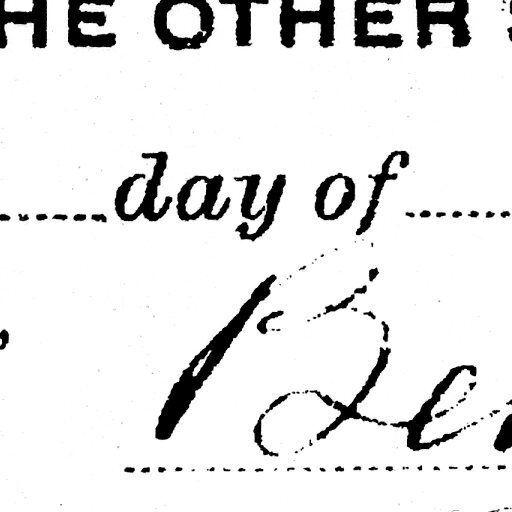 HE OTHER
day of
Ber